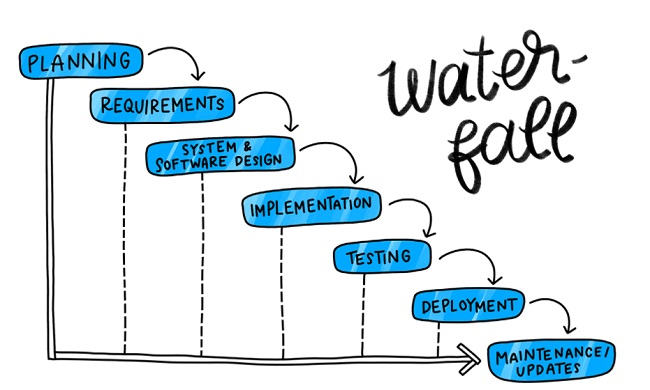 PLANNING
REQUIREMENTS
SYSTEM &
SOFTWARE DESIGN
IMPLEMENTATION
TESTING
DEPLOYMENT
MAINTENANCE/
UPDATES
Water-
fall